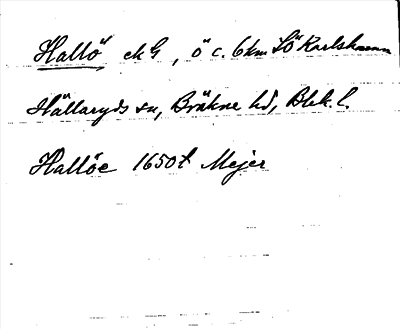 Hallö ek G, ö c. 6 km SÖ Karlshamn
Hällaryds sn, Bräkne hd, Blek. l.
Hallöe 1650t Mejer